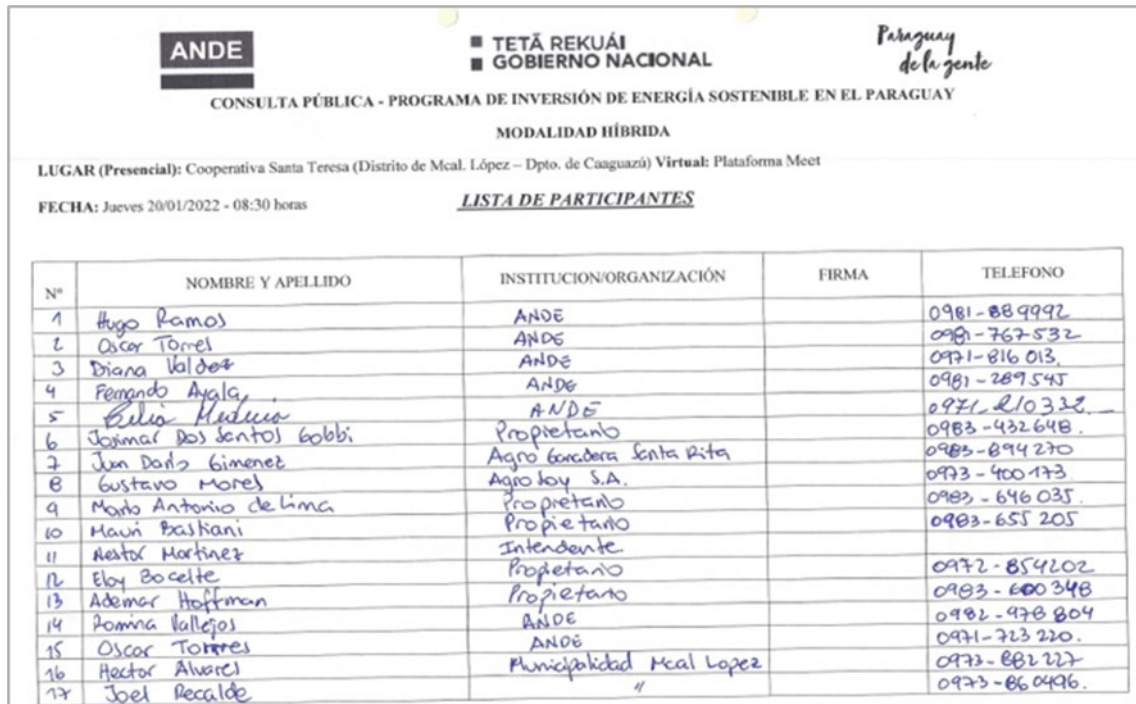 ANDE
TETÃ REKUÁI
GOBIERNO NACIONAL
Paraguay
de la gente
CONSULTA PÚBLICA - PROGRAMA DE INVERSIÓN DE ENERGÍA SOSTENIBLE EN EL PARAGUAY
MODALIDAD HÍBRIDA
LUGAR (Presencial): Cooperativa Santa Teresa (Distrito de Mcal. López – Dpto. de Caaguazú) Virtual: Plataforma Meet
FECHA: Jueves 20/01/2022 - 08:30 horas LISTA DE PARTICIPANTES
Nº NOMBRE Y APELLIDO INSTITUCION/ORGANIZACIÓN FIRMA TELEFONO
1 Hugo Ramos ANDE 0981-889992
2 Oscar Torres ANDE 0981-767-532
3 Diana Valdez ANDE 0971-816 013.
4 Fernando Ayala ANDE 0981-289545
5 ANDE 0971-210332
6 Josimar Dos Santos Gobbi Propietario 0983-432648.
7 Juan Dario Gimenez Agro Ganadera Santa Rita 0983-894270
8 Gustavo Mores Agro Soy S.A. 0973-400173
9 Mario Antonio de Lima Propietario 0983-646035.
10 Mauri Bastiani Propietario 0983-655 205
11 Nestor Martinez Intendente
12 Eloy Propietario 0972-854202
13 Ademar Hoffman Propietario 0983-600348
14 Romina Vallejos ANDE 0982-978 804
15 Oscar Torres ANDE 0971-723 220.
16 Hector Alvares Municipalidad Mcal Lopez 0973-882 227
17 Joel Recalde " 0973-860496.